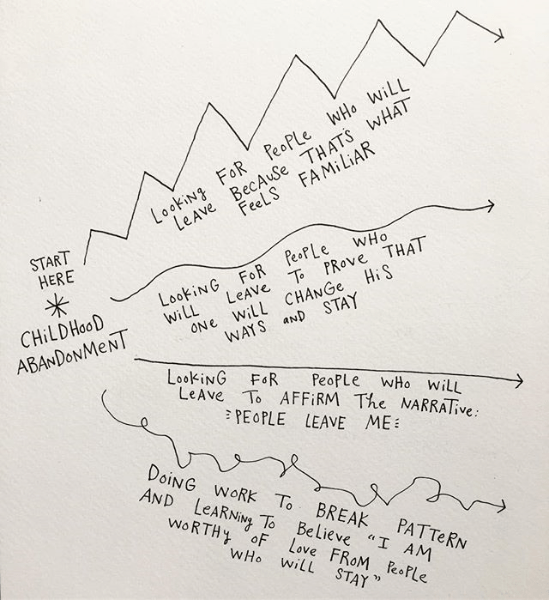 START
HERE
CHILDHOOD
ABANDONMENT
LOOKING FOR PEOPLE WHO WILL
LEAVE BECAUSE THAT'S WHAT
FEELS FAMILIAR
LOOKING FOR PEOPLE WHO
WILL LEAVE TO PROVE THAT
ONE WILL CHANGE HIS
WAYS AND STAY
LOOKING FOR PEOPLE WHO WILL
LEAVE TO AFFIRM THE NARRATIVE:
PEOPLE LEAVE ME
DOING WORK TO BREAK PATTERN
AND LEARNING TO BELIEVE "I AM
WORTHY OF LOVE FROM PEOPLE
WHO WILL STAY"